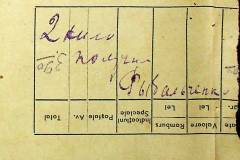 2 кило
получил
Рыбальченко
Total
Postale Av.
Indicațiuni Speciale
Ramburs Lei
Valoare Lei